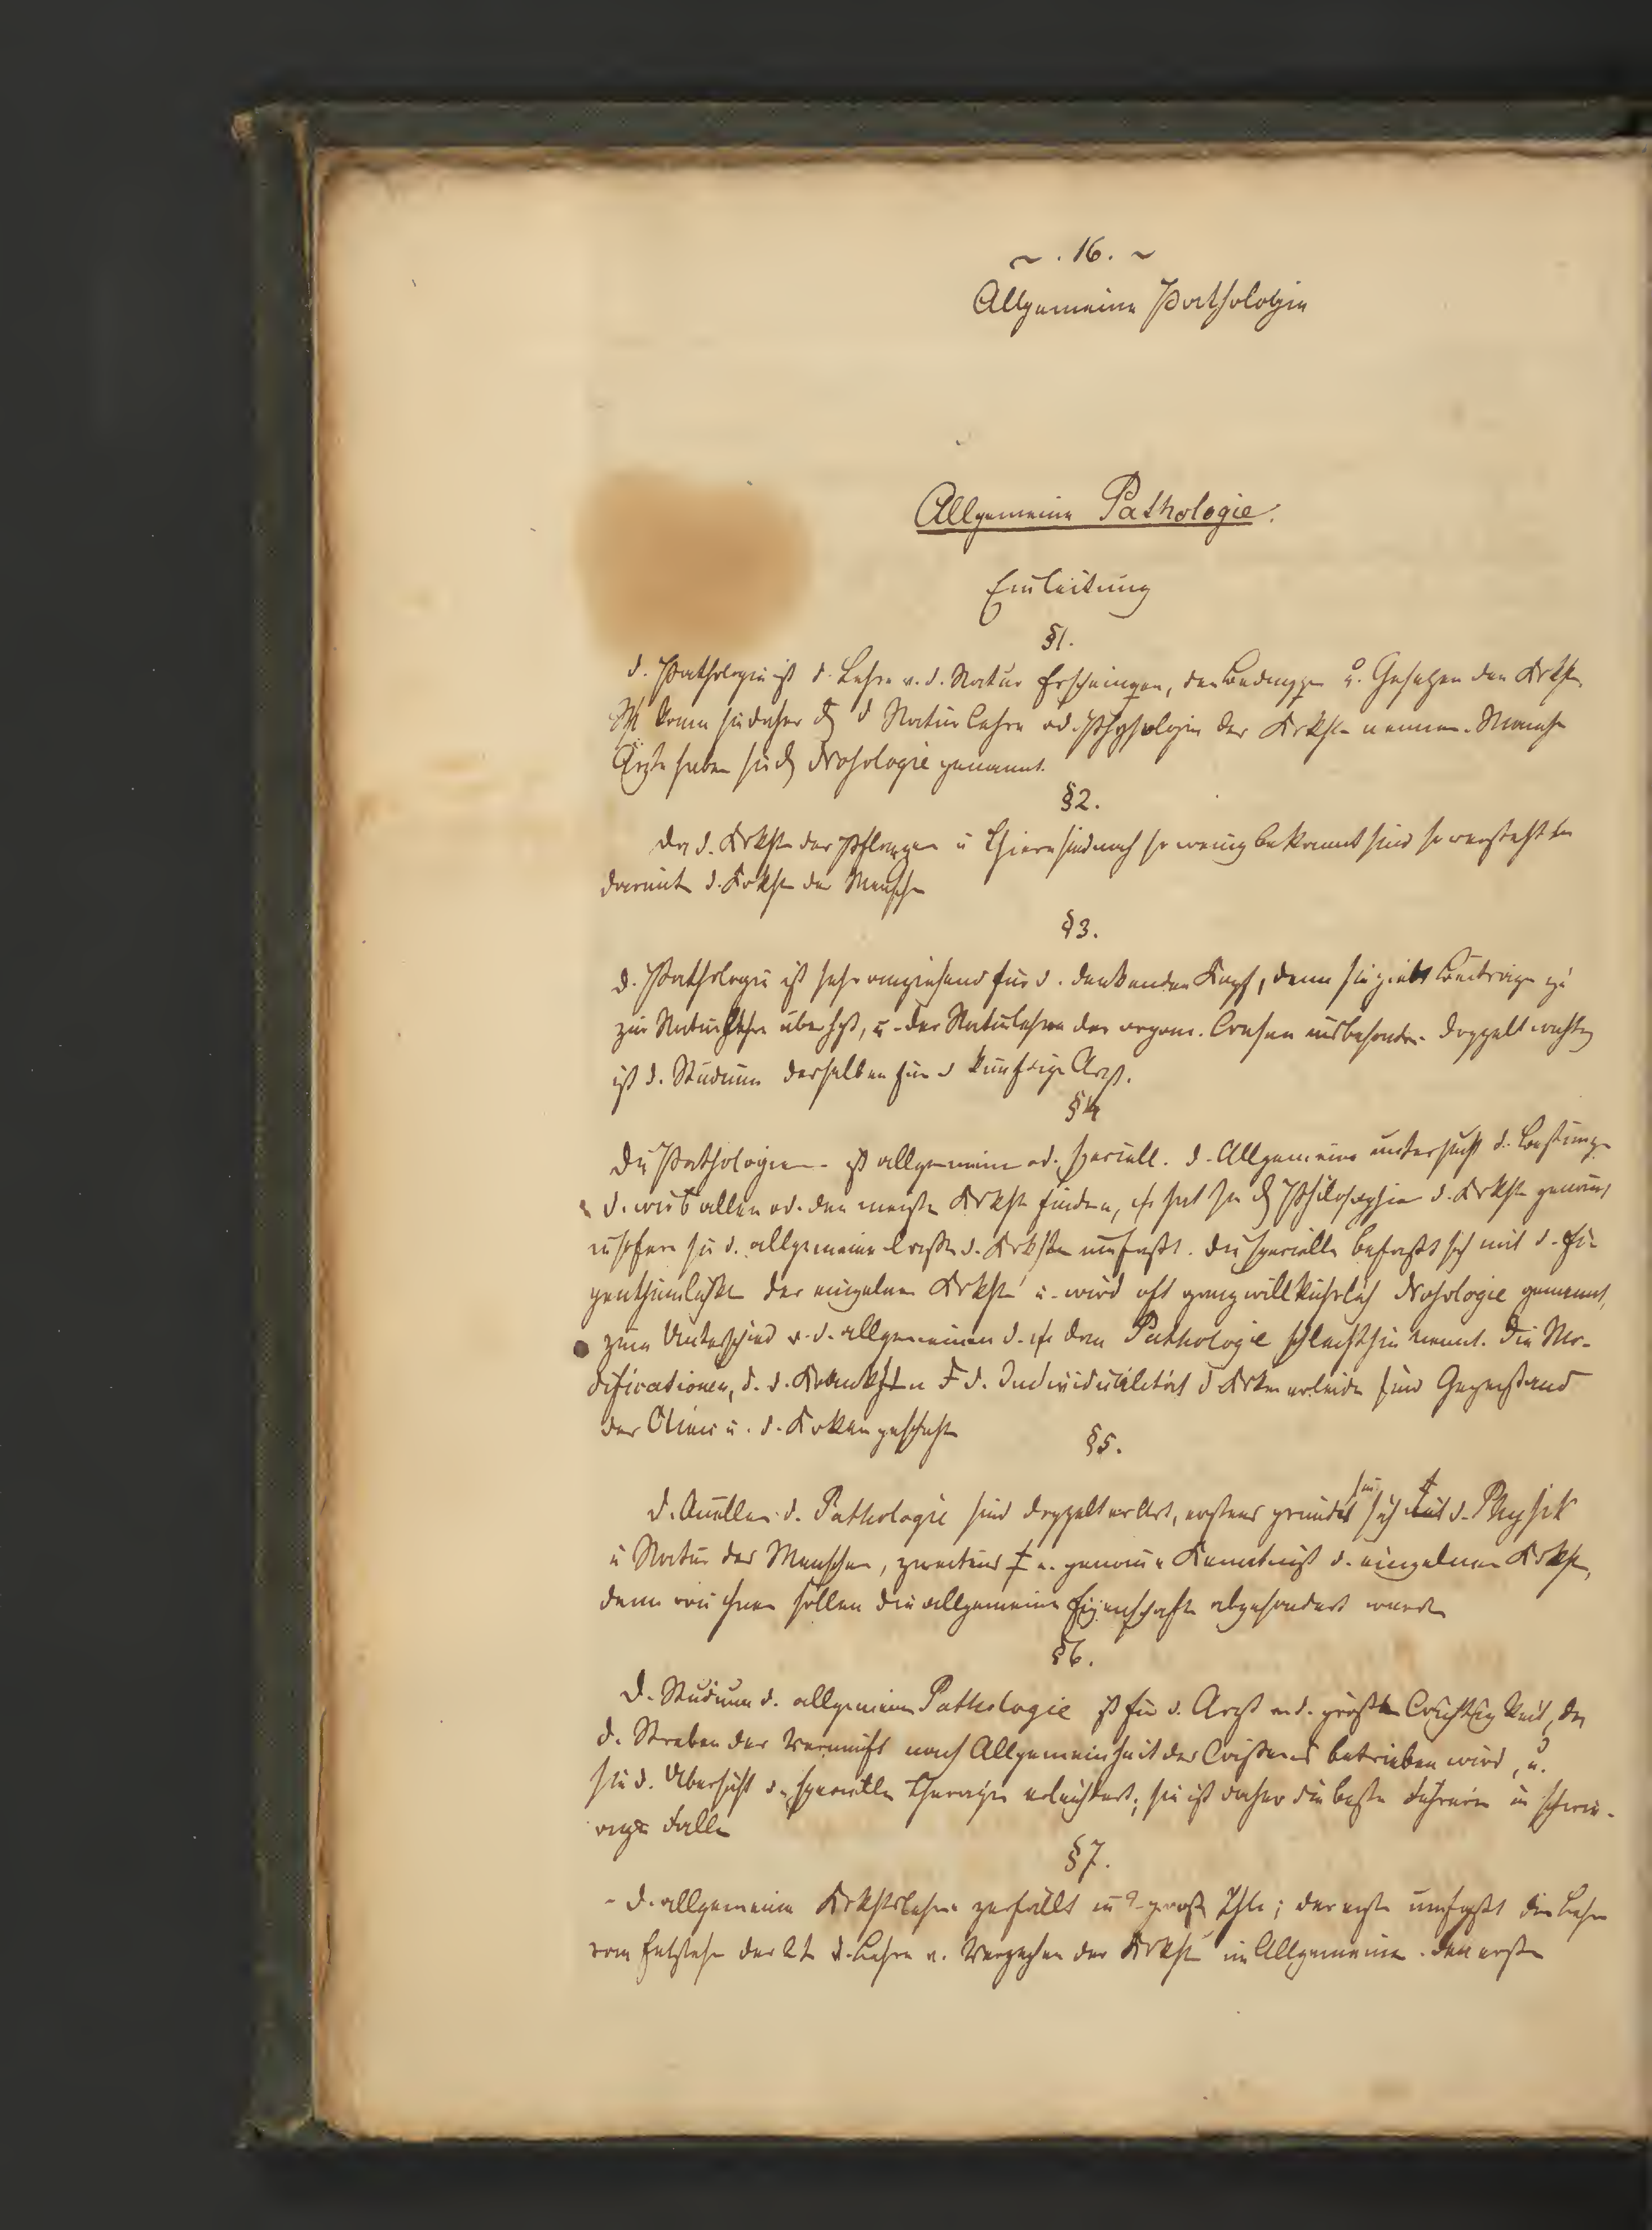 ~ . 16. ~
Allgemeine Pathologie
Allgemeine Pathologie.
Einleitung
§1.
d. Pathologie ist d. Lehre v. d. Natur Erscheinungen, den u. Gesetzen der Krkhtn
kann sie daher d Naturlehre od. Physiologie der Krkhtn nennen. Manche
Ärzte haben sie Nosologie genannt.
§2.
Da d. Krkhtn der Pflanzen u Thiere sind noch so wenig bekannt sind so versteht
darunter d. Krkhtn der Menschen
§3.
d. Pathologie ist sehr anziehend für d. denkenden Kopf, denn sie giebt Beiträge zu
zur Naturlehre überhpt, u. der Naturlehre der organ. Wesen insbesondere. Doppelt wichtig
ist d. Studium derselben für d künftige Arzt.
§4
Die Pathologie ist allgemein od. speciell. d. Allgemeine untersucht d.
d. wir b allen od. den meisten Krkhtn finden, hat sie Philosophie d. Krkhtn genannt
d. allgemeine d. Krkhtn umfasst. Die specielle befasst sich mit d. Ei-
genthümlichktn der einzelnen Krkhtn u. wird oft ganz willkührlich Nosologie genannt,
zum Unterschied v. d. allgemeinen d. dann Pathologie schlechthin nennt. Die Mo-
dificationen, d. d. Krankhtn d. Individualität d Krken erleiden sind Gegenstand
der Clinic u. d. Krkengeschichte
§5.
d. Quellen d. Pathologie sind doppelter Art, erstens gründet sie sich d. Physik
u Natur des Menschen, zweitens genaue Kenntniß d. einzelnen Krkhtn,
denn von ihnen sollen die allgemeine Eigenschaften abgesondert werden
§6.
D. Studium d. allgemeinen Pathologie ist für d. Arzt v. d. größten Wichtigkeit, da
d. Streben der Vernunft nach Allgemeinheit des Wissens betrieben wird, u.
sie d. Übersicht d. speciellen Therapie erleichtert; sie ist daher die beste Führerin in schwie-
rigen Fällen
§7.
- d. allgemeine Krkhtslehre zerfällt in 2 große Thle; der erste umfaßt die Lehre
vom Entstehen der 2te d. Lehre v. Vergehen der Krkhtn im Allgemeinen. den ersten